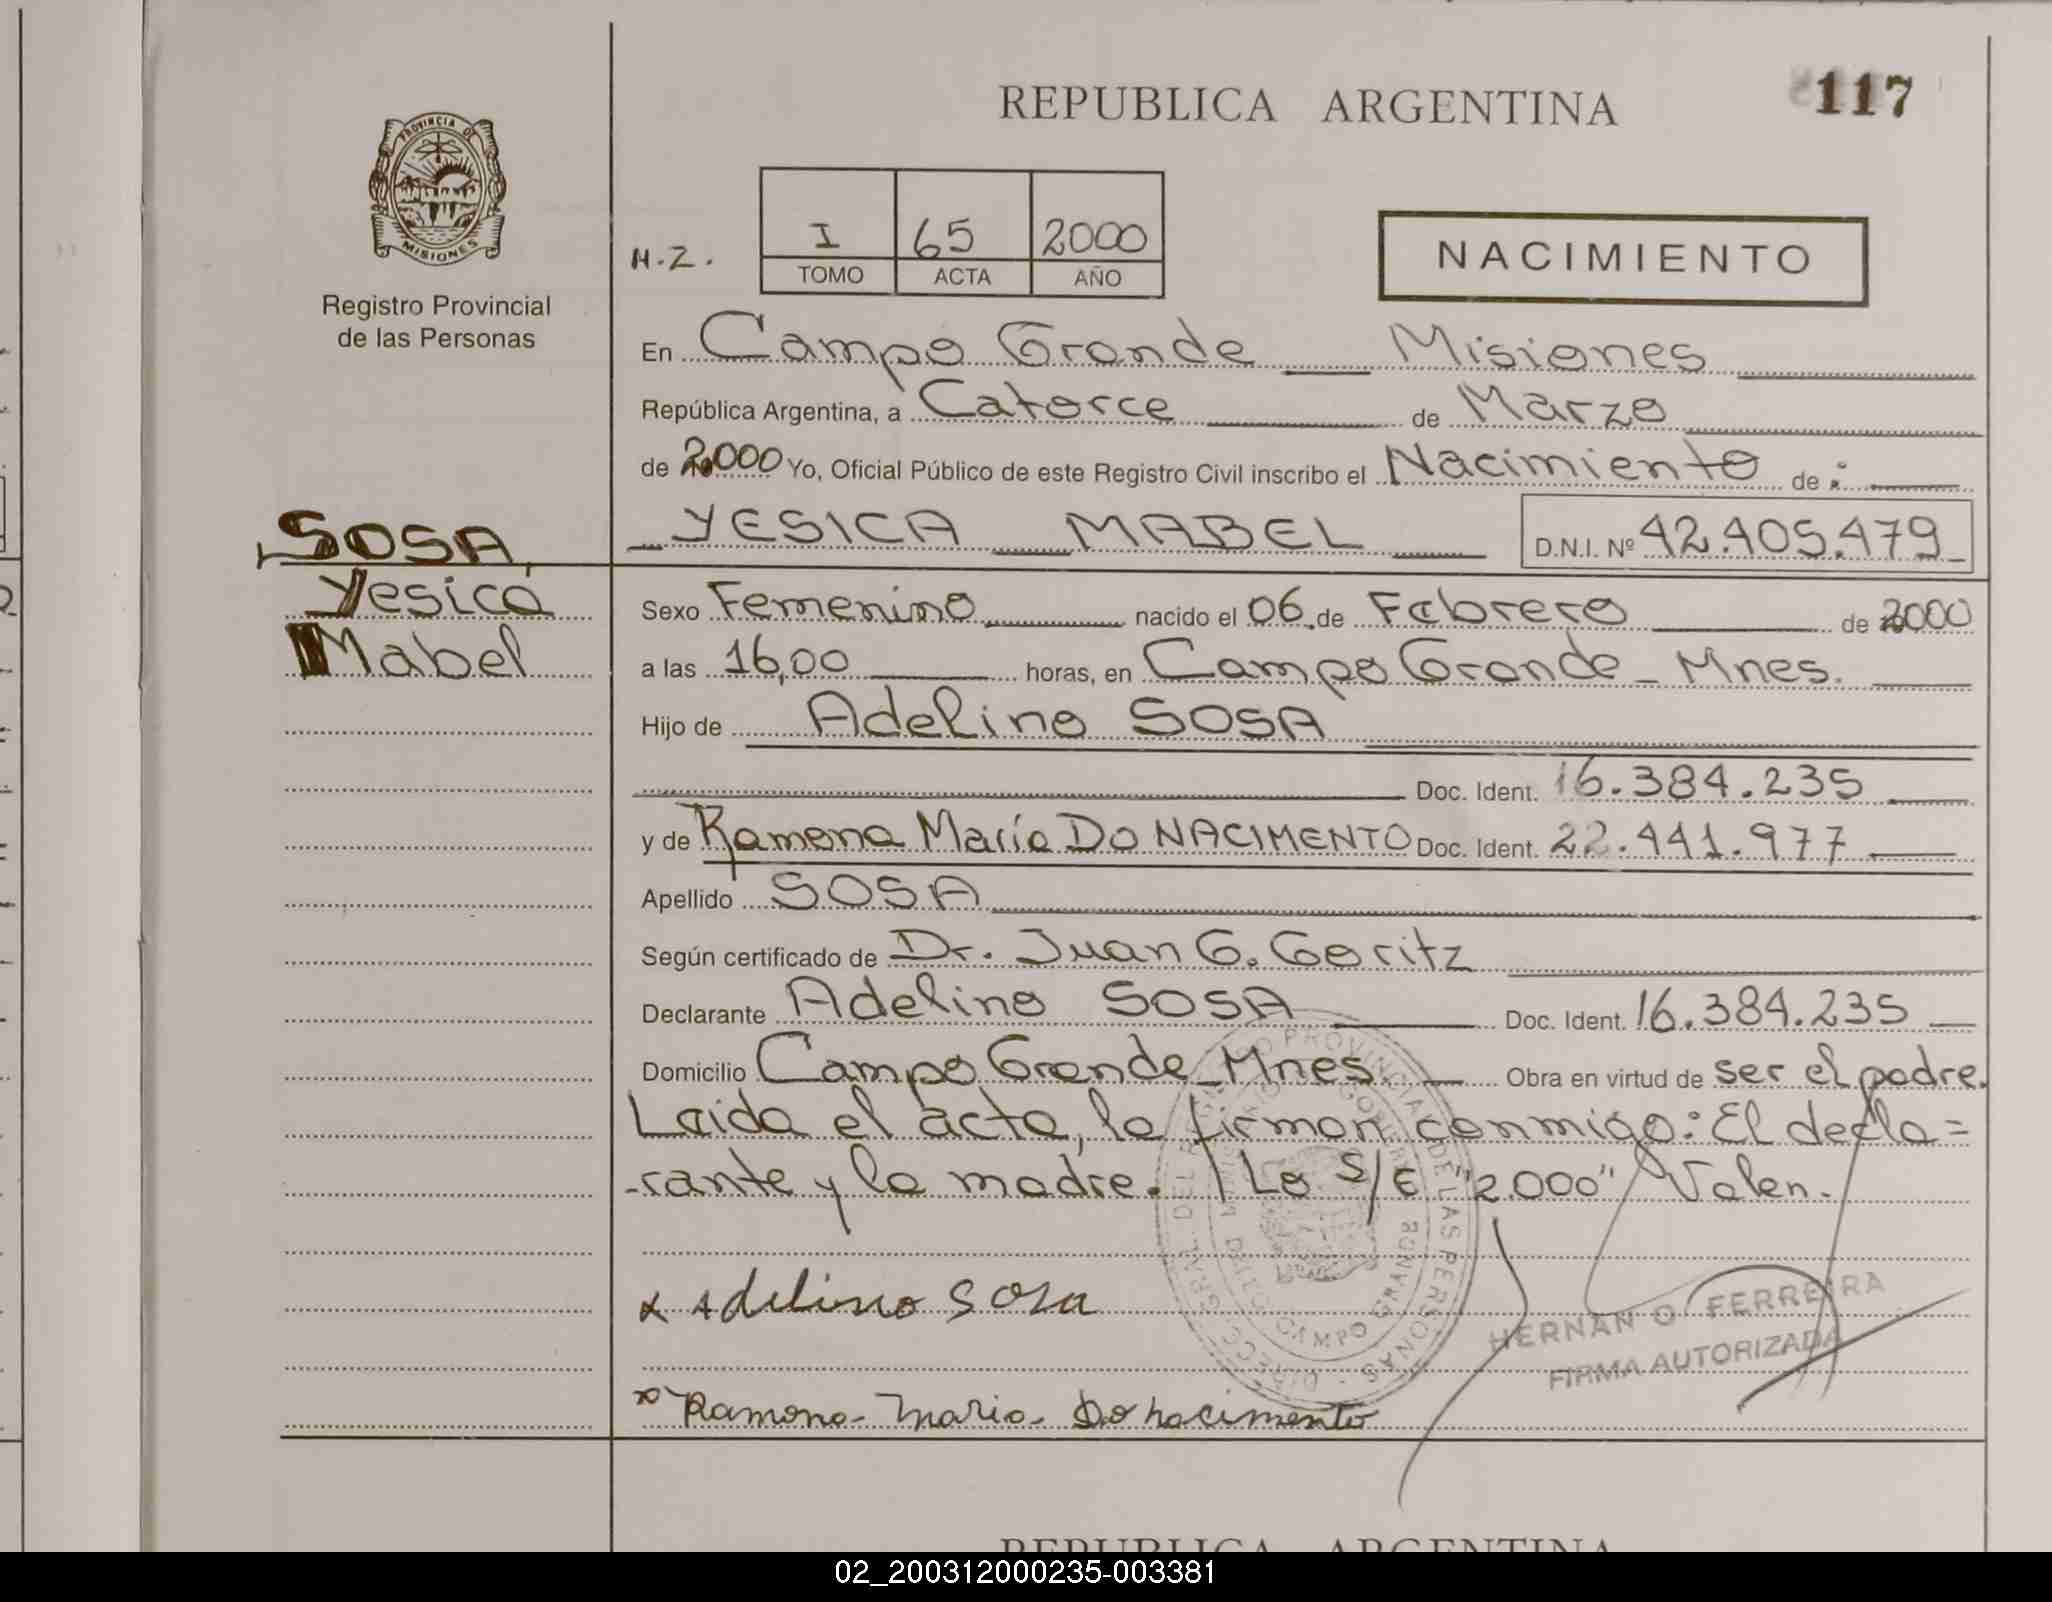 REPUBLICA ARGENTINA
117
PROVINCIA DE
MISIONES
Registro Provincial
de las Personas
H.Z.
I 65 2000
TOMO ACTA AÑO
NACIMIENTO
En Campo Grande Misiones
República Argentina, a Catorce de Marzo
de 2.000 Yo, Oficial Público de este Registro Civil inscribo el Nacimiento de :
YESICA MABEL D.N.I. Nº 42.405.479
SOSA,
Yesica
Mabel
Sexo Femenino nacido el 06 de Febrero de 2000
a las 16,00 horas, en Campo Grande - Mnes.
Hijo de Adelino SOSA
Doc. Ident. 16.384.235
y de Ramona María DO NACIMENTO Doc. Ident. 22.441.977
Apellido SOSA
Según certificado de Dr. Juan G. Goritz
Declarante Adelino SOSA Doc. Ident. 16.384.235
Domicilio Campo Grande - Mnes. Obra en virtud de ser el padre.
Leida el acta, la firman conmigo: El decla=
-rante y la madre. Lo S/E "2.000" Valen.
x Adelino Sosa
HERNAN O FERREIRA
FIRMA AUTORIZADA
x Ramona - Maria - Do nacimento
REPUBLICA ARGENTINA
02_200312000235-003381